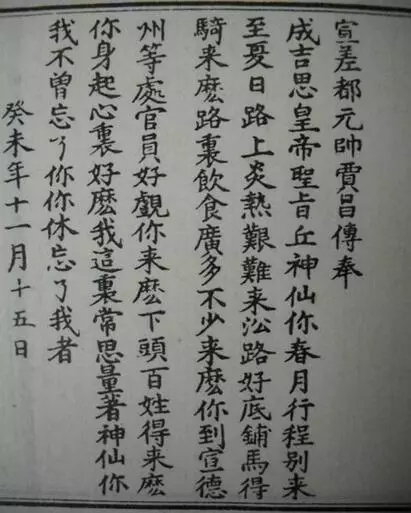 宣差都元帥賈昌傳奉
成吉思皇帝聖旨丘神仙你春月行程別来
至夏日路上炎熱艱難来㳂路好底鋪馬得
騎来麽路裏飲食廣多不少来麽你到宣德
州等處官員好覷你来麽下頭百姓得来麽
你身起心裏好麽我這裏常思量著神仙你
我不曾忘了你你休忘了我者
癸未年十一月十五日